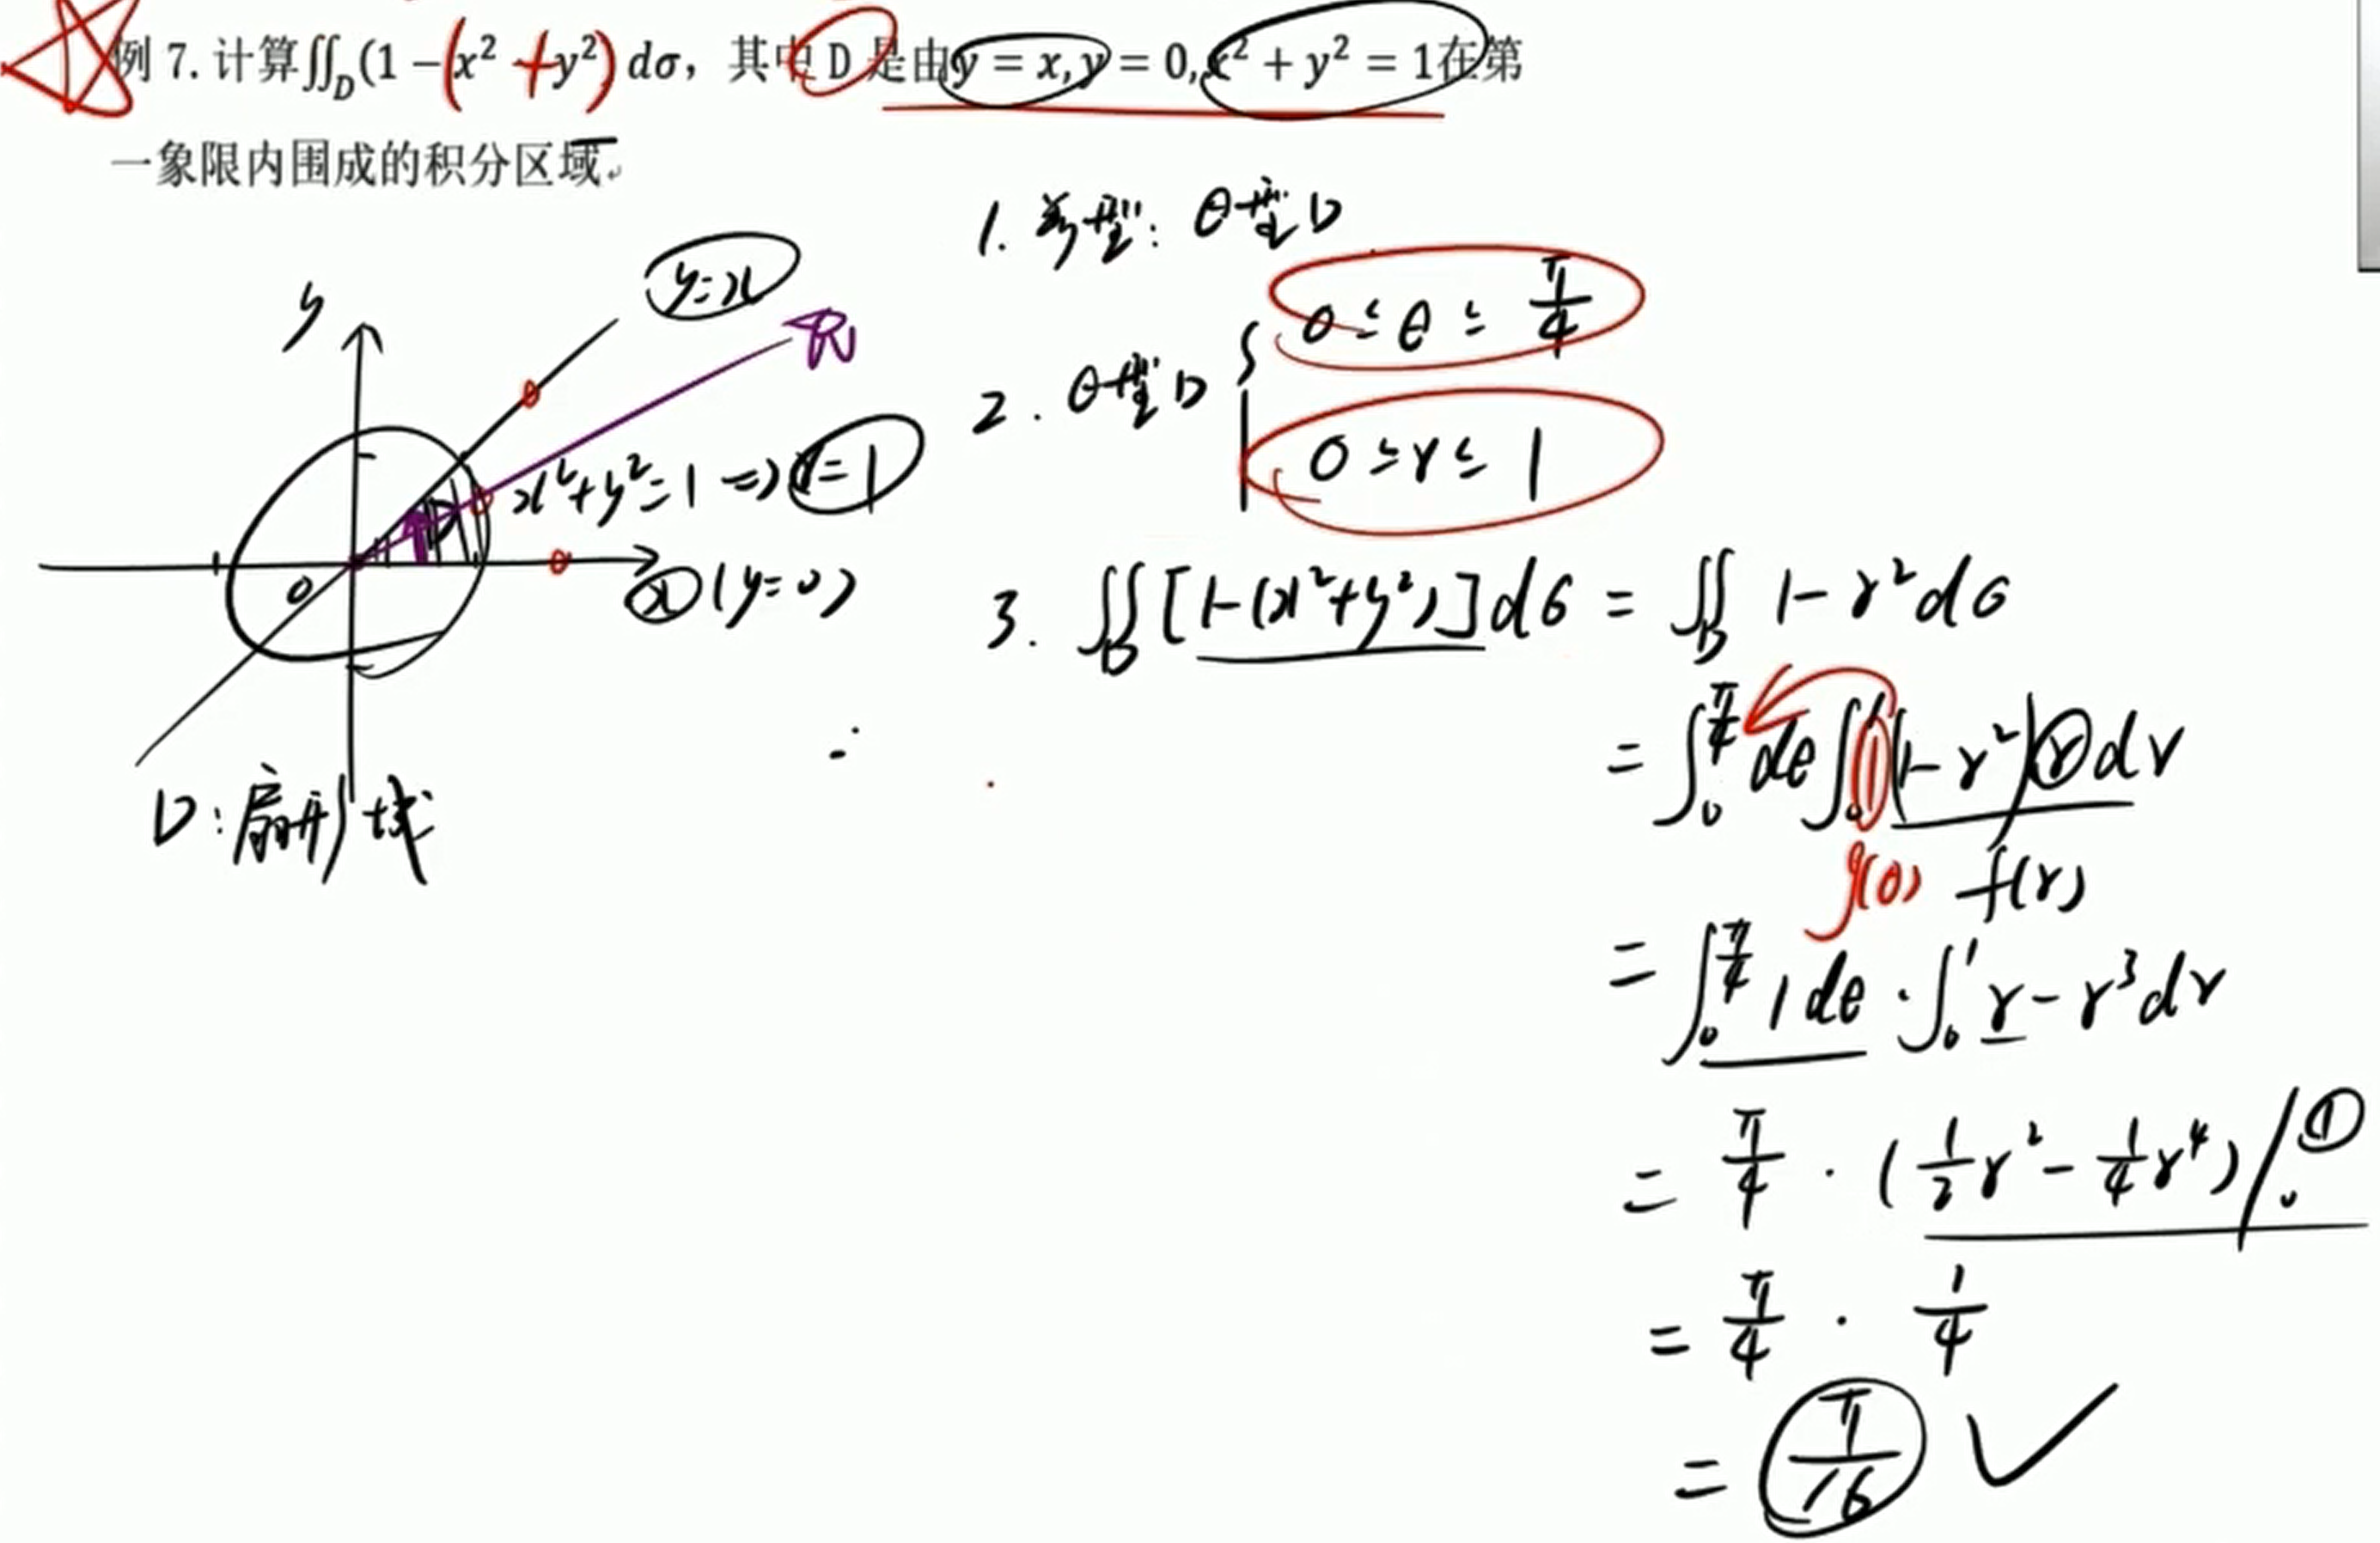 例 7. 计算∬_D(1 −(x² + y²) dσ，其中 D 是由y = x, y = 0, x² + y² = 1在第
一象限内围成的积分区域
y
y=x
x²+y²=1 ⇒ r=1
0
x (y=0)
D
D: 扇形域
1. 类型: θ型D
2. θ型D { 0 ≤ θ ≤ π/4
0 ≤ r ≤ 1
3. ∬_D [1-(x²+y²)]dσ = ∬_D 1-r²dσ
= ∫₀^(π/4) dθ ∫₀¹ 1 (1-r²) r dr
g(θ) f(r)
= ∫₀^(π/4) 1 dθ · ∫₀¹ r - r³ dr
= π/4 · (1/2 r² - 1/4 r⁴) |₀¹
= π/4 · 1/4
= π/16 ✓